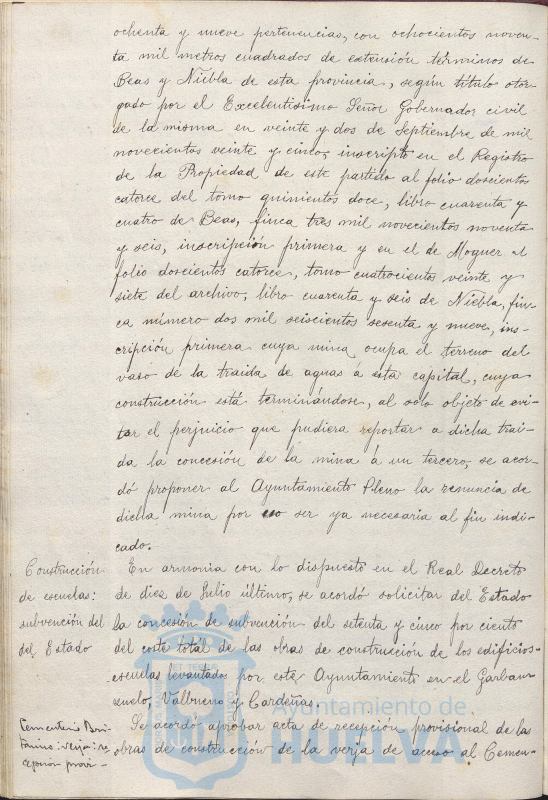 ochenta y nueve pertenencias, con ochocientos noven-
ta mil metros cuadrados de extensión términos de
Beas y Niebla de esta provincia, según título otor-
gado por el Excelentísimo Señor Gobernador civil
de la misma en veinte y dos de Septiembre de mil
novecientos veinte y cinco, inscripto en el Registro
de la Propiedad de este partido al folio doscientos
catorce del tomo quinientos doce, libro cuarenta y
cuatro de Beas, finca tres mil novecientos noventa
y seis, inscripción primera y en el de Moguer al
folio doscientos catorce, tomo cuatrocientos veinte y
siete del archivo, libro cuarenta y seis de Niebla, fin-
ca número dos mil seiscientos sesenta y nueve, ins-
cripción primera cuya mina ocupa el terreno del
vaso de la traida de aguas á esta capital, cuya
construcción está terminándose, al solo objeto de evi-
tar el perjuicio que pudiera reportar a dicha trai-
da la concesión de la mina á un tercero, se acor-
dó proponer al Ayuntamiento Pleno la renuncia de
dicha mina por no ser ya necesaria al fin indi-
cado.
Construcción
de escuelas:
subvención del
del Estado
En armonia con lo dispuesto en el Real Decreto
de diez de Julio último, se acordó solicitar del Estado
la concesión de subvención del setenta y cinco por ciento
del coste total de las obras de construcción de los edificios-
escuelas levantados por este Ayuntamiento en el Garban-
zuelo, Valbueno y Cardeñas.
Cementerio Bri-
tánico: verja: re-
cepción provi-
Se acordó aprobar acta de recepción provisional de las
obras de construcción de la verja de acceso al Cemen-
Ayuntamiento de
HUELVA